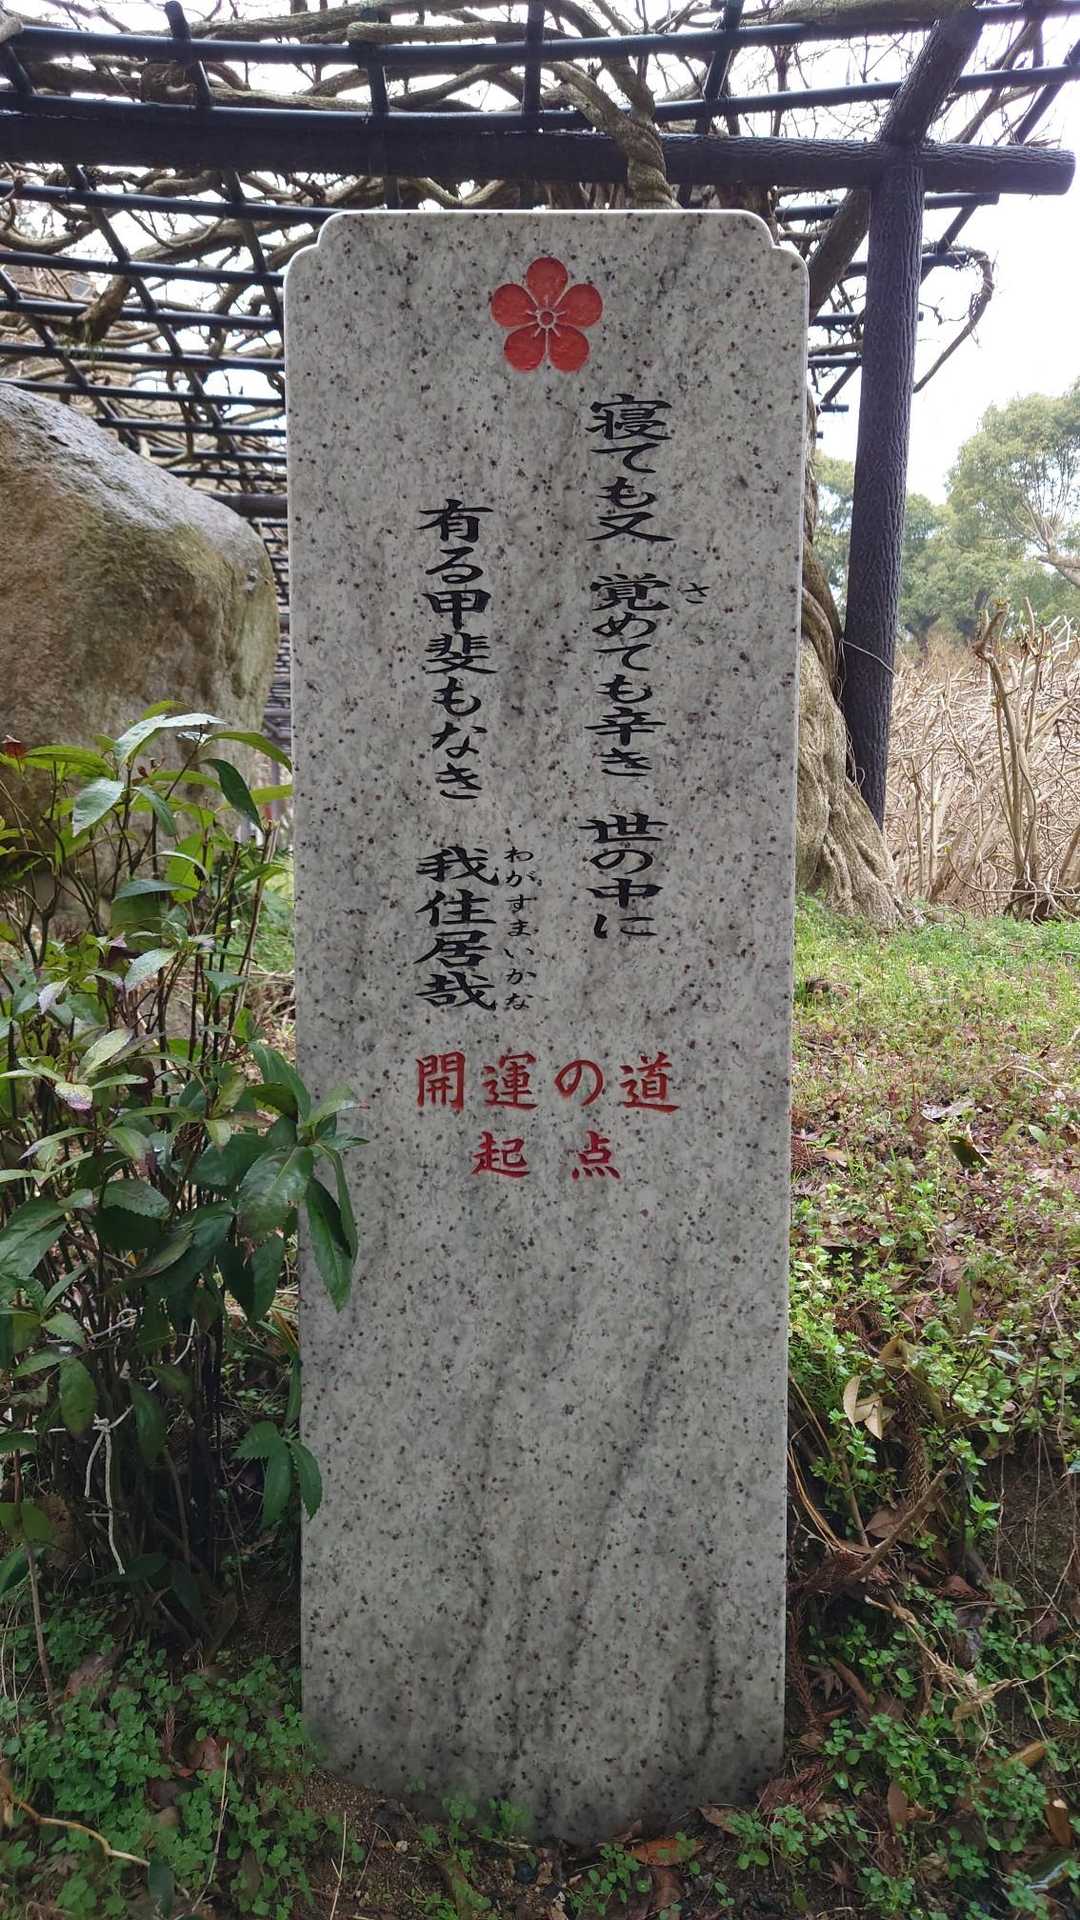 寝ても又 覚めても辛き 世の中に
さ
有る甲斐もなき 我住居哉
わがすまいかな
開運の道
起点